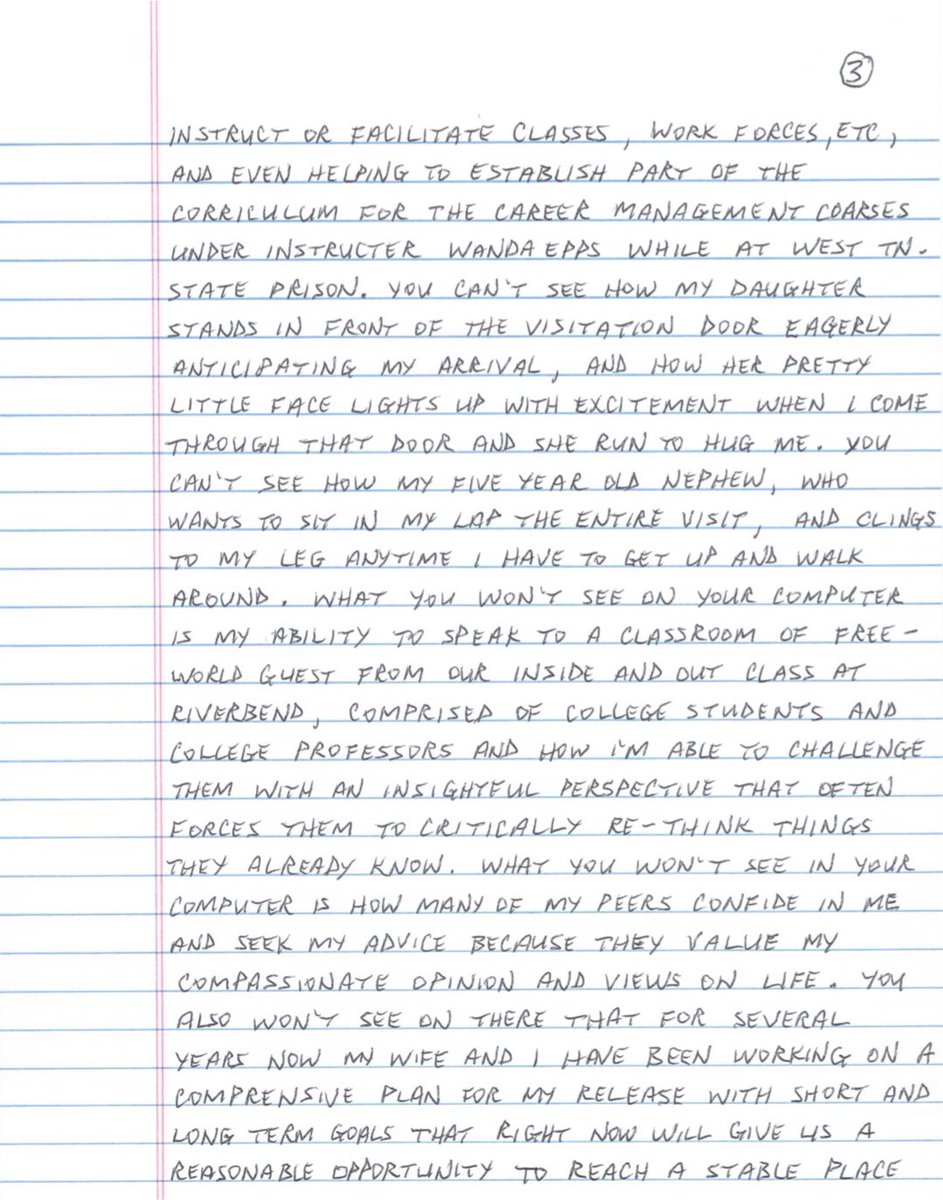 3
INSTRUCT OR FACILITATE CLASSES, WORK FORCES, ETC,
AND EVEN HELPING TO ESTABLISH PART OF THE
CORRICULUM FOR THE CAREER MANAGEMENT COARSES
UNDER INSTRUCTER WANDA EPPS WHILE AT WEST TN.
STATE PRISON. YOU CAN'T SEE HOW MY DAUGHTER
STANDS IN FRONT OF THE VISITATION DOOR EAGERLY
ANTICIPATING MY ARRIVAL, AND HOW HER PRETTY
LITTLE FACE LIGHTS UP WITH EXCITEMENT WHEN I COME
THROUGH THAT DOOR AND SHE RUN TO HUG ME. YOU
CAN'T SEE HOW MY FIVE YEAR OLD NEPHEW, WHO
WANTS TO SIT IN MY LAP THE ENTIRE VISIT, AND CLINGS
TO MY LEG ANYTIME I HAVE TO GET UP AND WALK
AROUND. WHAT YOU WON'T SEE ON YOUR COMPUTER
IS MY ABILITY TO SPEAK TO A CLASSROOM OF FREE-
WORLD GUEST FROM OUR INSIDE AND OUT CLASS AT
RIVERBEND, COMPRISED OF COLLEGE STUDENTS AND
COLLEGE PROFESSORS AND HOW I'M ABLE TO CHALLENGE
THEM WITH AN INSIGHTFUL PERSPECTIVE THAT OFTEN
FORCES THEM TO CRITICALLY RE-THINK THINGS
THEY ALREADY KNOW. WHAT YOU WON'T SEE IN YOUR
COMPUTER IS HOW MANY OF MY PEERS CONFIDE IN ME
AND SEEK MY ADVICE BECAUSE THEY VALUE MY
COMPASSIONATE OPINION AND VIEWS ON LIFE. YOU
ALSO WON'T SEE ON THERE THAT FOR SEVERAL
YEARS NOW MY WIFE AND I HAVE BEEN WORKING ON A
COMPRENSIVE PLAN FOR MY RELEASE WITH SHORT AND
LONG TERM GOALS THAT RIGHT NOW WILL GIVE US A
REASONABLE OPPORTUNITY TO REACH A STABLE PLACE